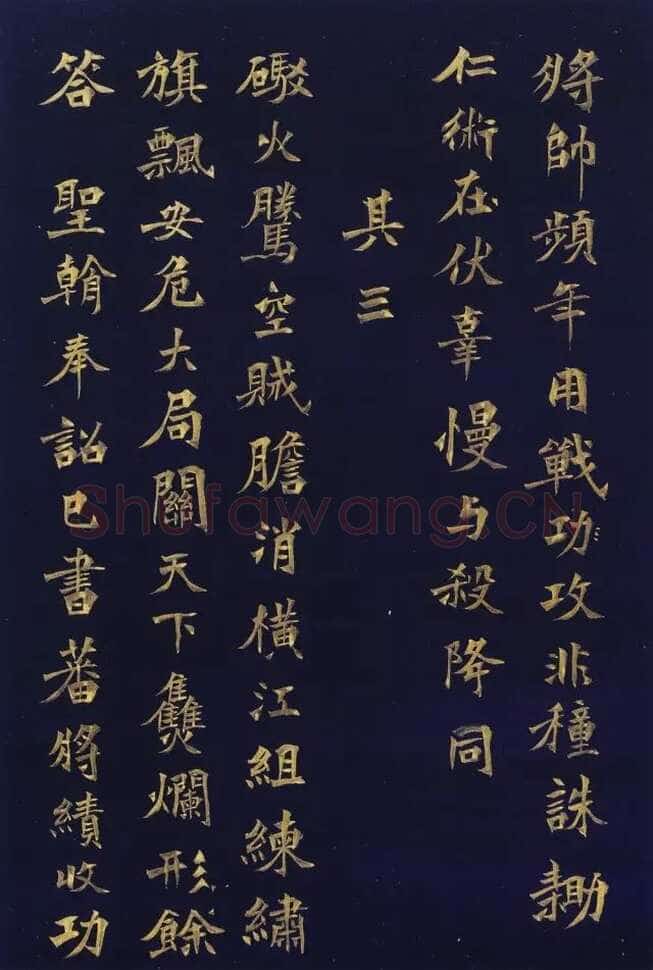 將帥頻年用戰功攻非種誅耡
仁術在伏辜慢与殺降同
其三
礮火騰空賊膽消橫江組練繡
旗飄安危大局關天下𤓪爛形餘
答 聖翰奉詔已書蕃將績收功
Shufawang.CN